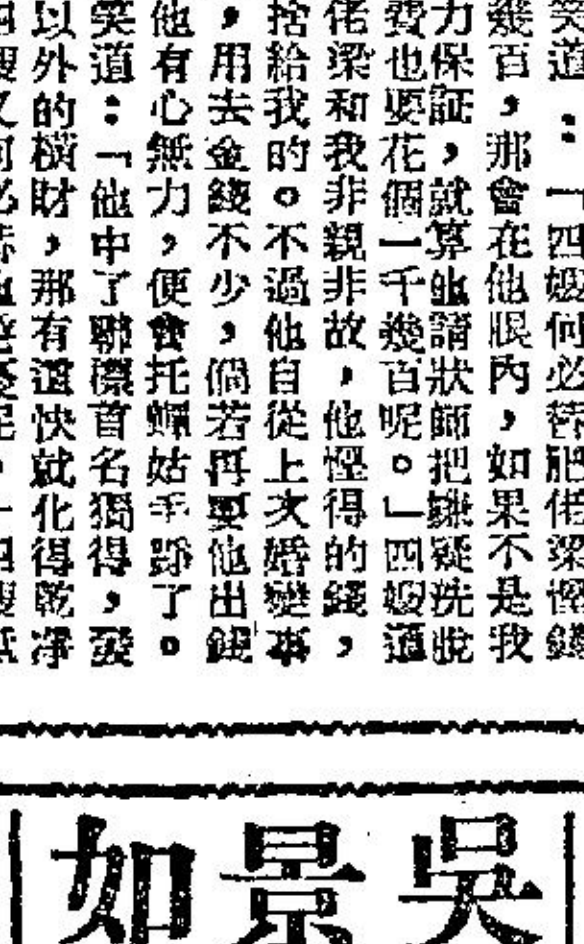 笑道：「四嫂何必替肥佬梁慳錢
幾百，那會在他眼內，如果不是我
力保証，就算他請狀師把嫌疑洗脫
費也要花個一千幾百呢。」四嫂道
佬梁和我非親非故，他慳得的錢，
捨給我的。不過他自從上次婚變事
，用去金錢不少，倘若再要他出錢
他有心無力，便會托庇姑手踭了。
笑道：「他中了聯標首名獨得，發
以外的橫財，那有這快就化得乾淨
吳景如